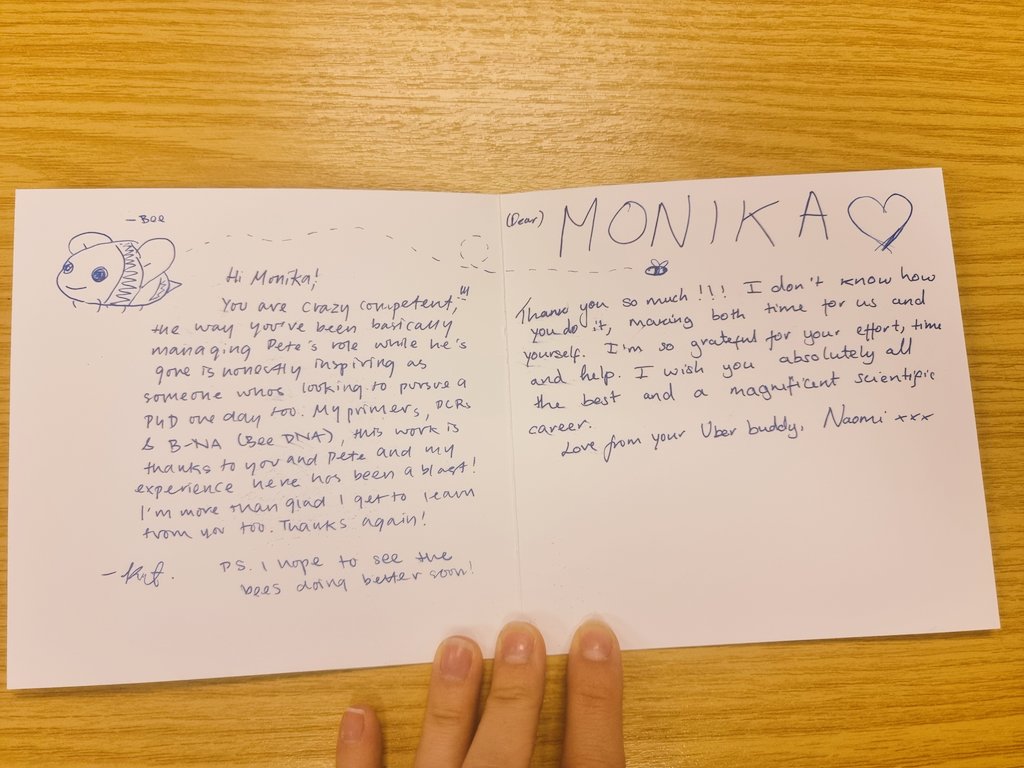 - BEE
Hi Monika!
You are crazy competent,
the way you've been basically
managing Pete's role while he's
gone is honestly inspiring as
someone whos looking to pursue a
PhD one day too. My primers, PCRs
& B-NA (Bee DNA), this work is
thanks to you and Pete and my
experience here has been a blast!
I'm more than glad I get to learn
from you too. Thanks again!
PS. I hope to see the
bees doing better soon!
(Dear) MONIKA
Thank you so much!!! I don't know how
you do it, making both time for us and
yourself. I'm so grateful for your effort, time
and help. I wish you absolutely all
the best and a magnificent scientific
career.
Love from your Uber buddy, Naomi xxx